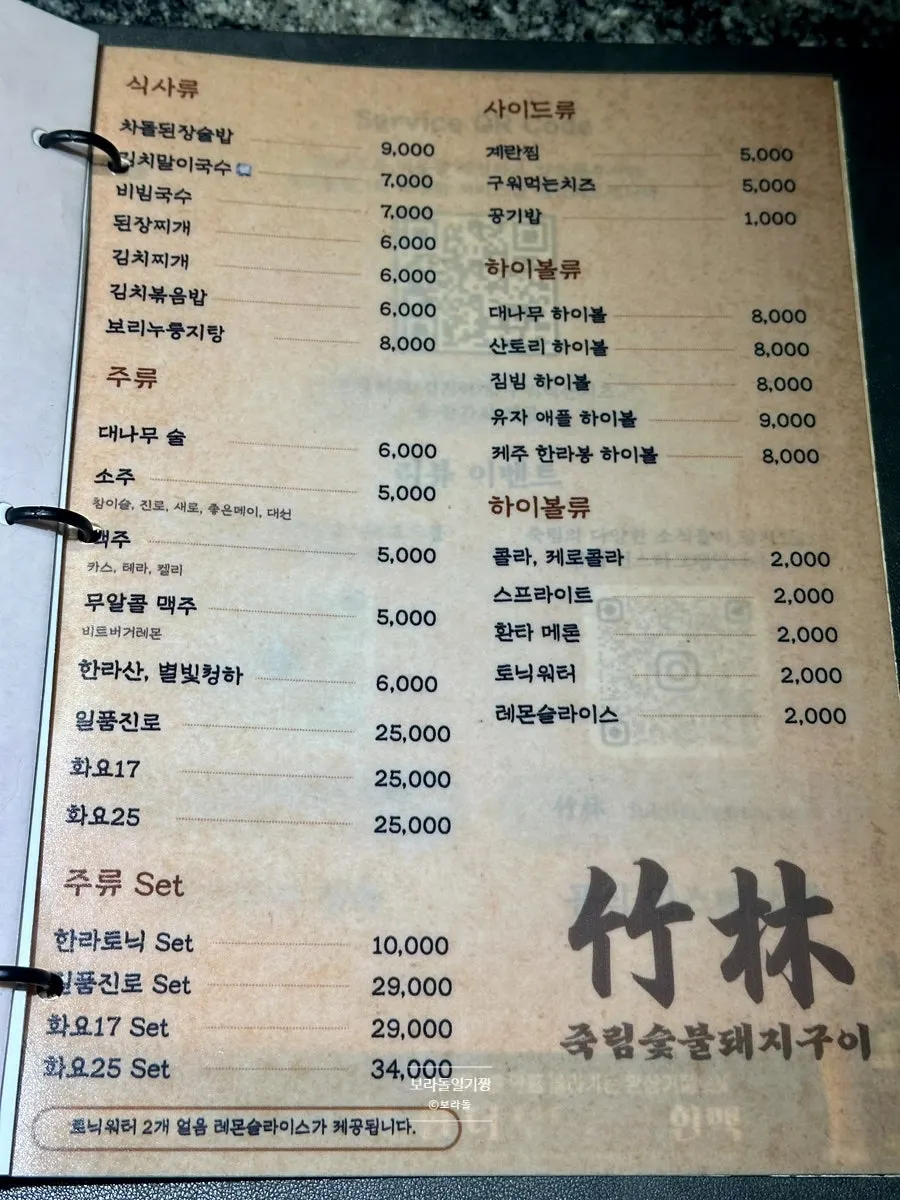 식사류
차돌된장술밥 9,000
김치말이국수 7,000
비빔국수 7,000
된장찌개 6,000
김치찌개 6,000
김치볶음밥 6,000
보리누룽지탕 8,000
주류
대나무 술 6,000
소주 5,000
참이슬, 진로, 새로, 좋은데이, 대선
맥주 5,000
카스, 테라, 켈리
무알콜 맥주 5,000
비트버거레몬
한라산, 별빛청하 6,000
일품진로 25,000
화요17 25,000
화요25 25,000
주류 Set
한라토닉 Set 10,000
일품진로 Set 29,000
화요17 Set 29,000
화요25 Set 34,000
토닉워터 2개 얼음 레몬슬라이스가 제공됩니다.
사이드류
계란찜 5,000
구워먹는치즈 5,000
공기밥 1,000
하이볼류
대나무 하이볼 8,000
산토리 하이볼 8,000
짐빔 하이볼 8,000
유자 애플 하이볼 9,000
제주 한라봉 하이볼 8,000
하이볼류
콜라, 제로콜라 2,000
스프라이트 2,000
환타 메론 2,000
토닉워터 2,000
레몬슬라이스 2,000
竹林
죽림숯불돼지구이
보라돌일기짱
©보라돌